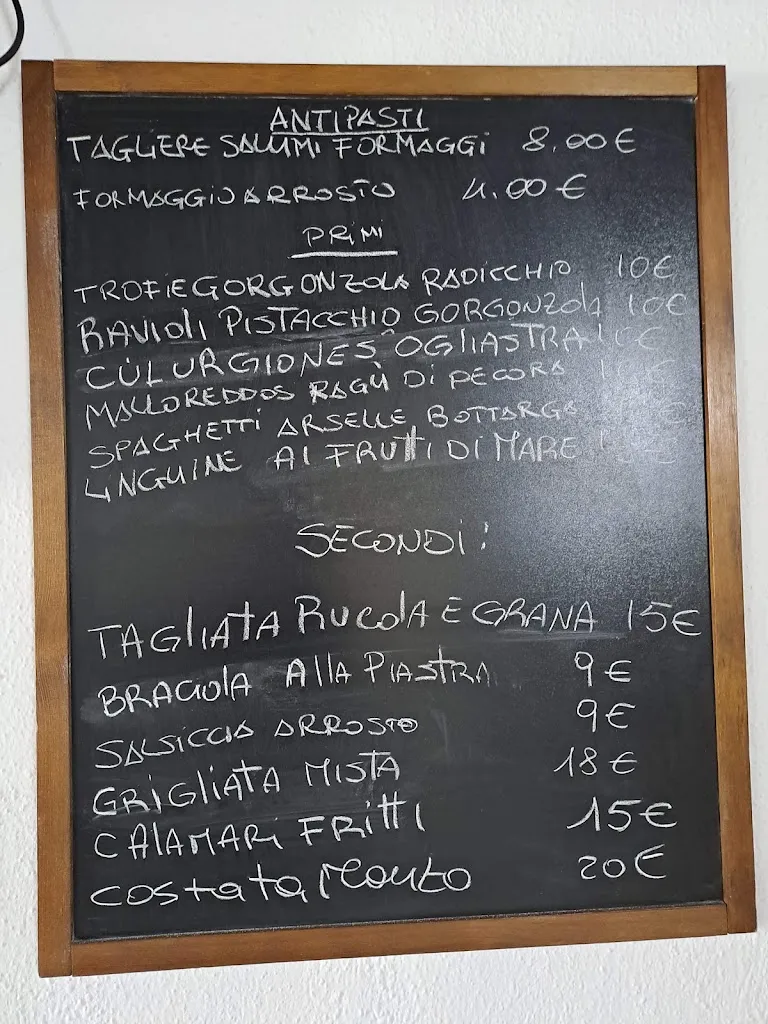 ANTIPASTI
TAGLIERE SALUMI FORMAGGI 8.00 €
FORMAGGIO ARROSTO 4.00 €
PRIMI
TROFIE GORGONZOLA RADICCHIO 10€
RAVIOLI PISTACCHIO GORGONZOLA 10€
CULURGIONES OGLIASTRA
MALLOREDDOS RAGÙ DI PECORA
SPAGHETTI ARSELLE BOTTARGA
LINGUINE AI FRUTTI DI MARE
SECONDI:
TAGLIATA RUCOLA E GRANA 15€
BRACIOLA ALLA PIASTRA 9€
SALSICCIA ARROSTO 9€
GRIGLIATA MISTA 18€
CALAMARI FRITTI 15€
COSTATA MANZO 20€